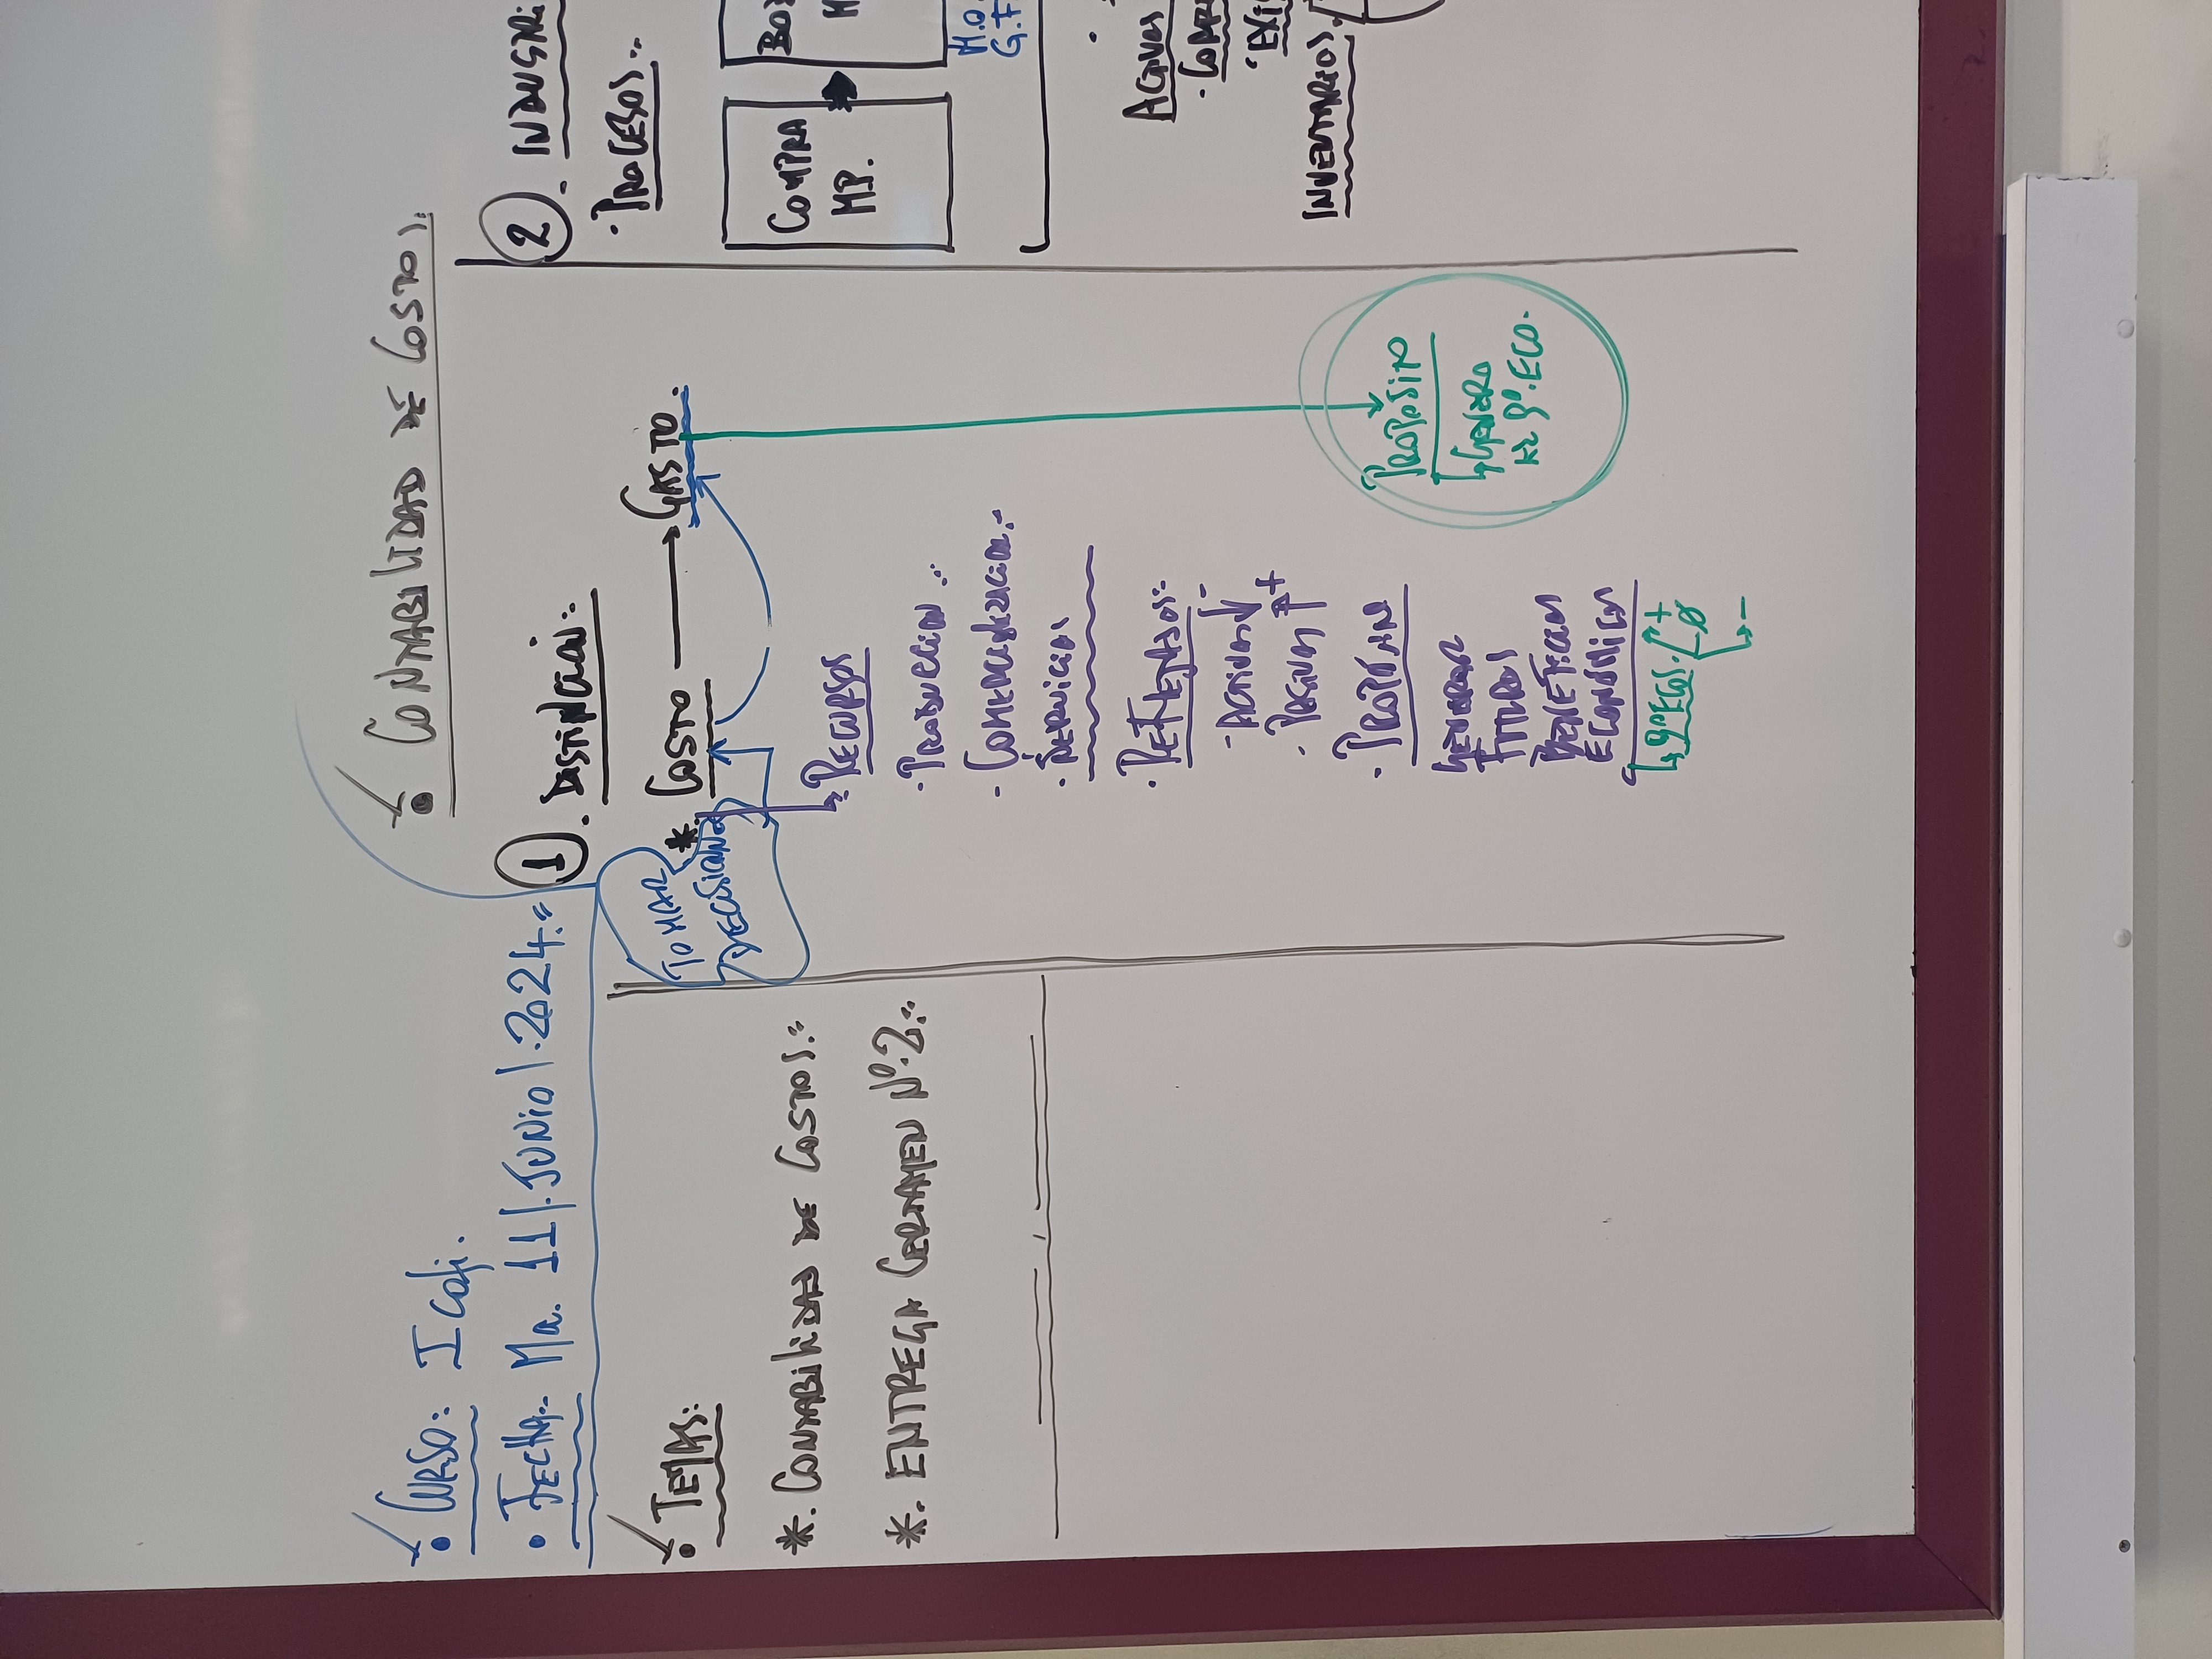 • CURSO: I Cofi.
• FECHA: Ma. 11/.JUNIO/.2024.=
• TEMAS:
*. CONTABILIDAD DE COSTOS.=
*. ENTREGA CERTAMEN Nº.2.=
TOMAR
DECISIONES
• CONTABILIDAD DE COSTOS.
1. DISTINCION:
*. COSTO → GASTO.
RECURSOS
- PRODUCCION.
- COMERCIALIZACION.-
- SERVICIOS
• REFLEJADOS:
- ACTIVOS ↓ -
- PASIVOS ↑ +
• PROPÓSITO
GENERAR
FUTUROS
BENEFICIOS
ECONÓMICOS
Bº ECOS. +
Ø
-
PROPÓSITO
GENERA
Bº.ECO.
2. INDUSTRI
• PROCESOS..
COMPRA
MP.
BOD
M
M.O.
G.F
ACTIVOS
EXIS
INVENTARIOS.